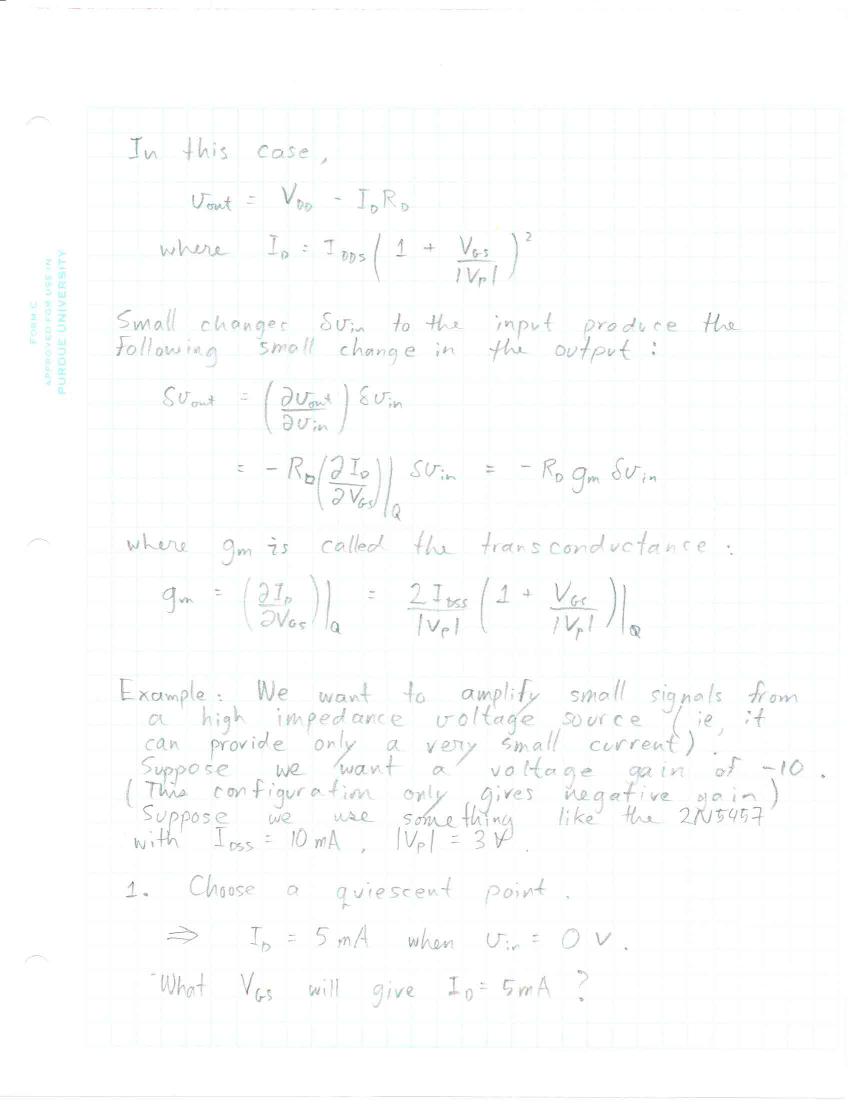 In this case,
Vout = VDD - ID RD
where ID = IDDS ( 1 + VGS / |Vp| )²
Small changes δvin to the input produce the
following small change in the output :
δvout = ( ∂vout / ∂vin ) δvin
= - RD ( ∂ID / ∂VGS )|Q δvin = - RD gm δvin
where gm is called the transconductance :
gm = ( ∂ID / ∂VGS )|Q = 2 IDSS / |Vp| ( 1 + VGS / |Vp| )|Q
Example : We want to amplify small signals from
a high impedance voltage source ( ie, it
can provide only a very small current ) .
Suppose we want a voltage gain of -10 .
( This configuration only gives negative gain )
Suppose we use something like the 2N5457
with IDSS = 10 mA , |Vp| = 3 V .
1. Choose a quiescent point .
⇒ ID = 5 mA when vin = 0 V .
What VGS will give ID = 5mA ?
FORM C
APPROVED FOR USE IN
PURDUE UNIVERSITY